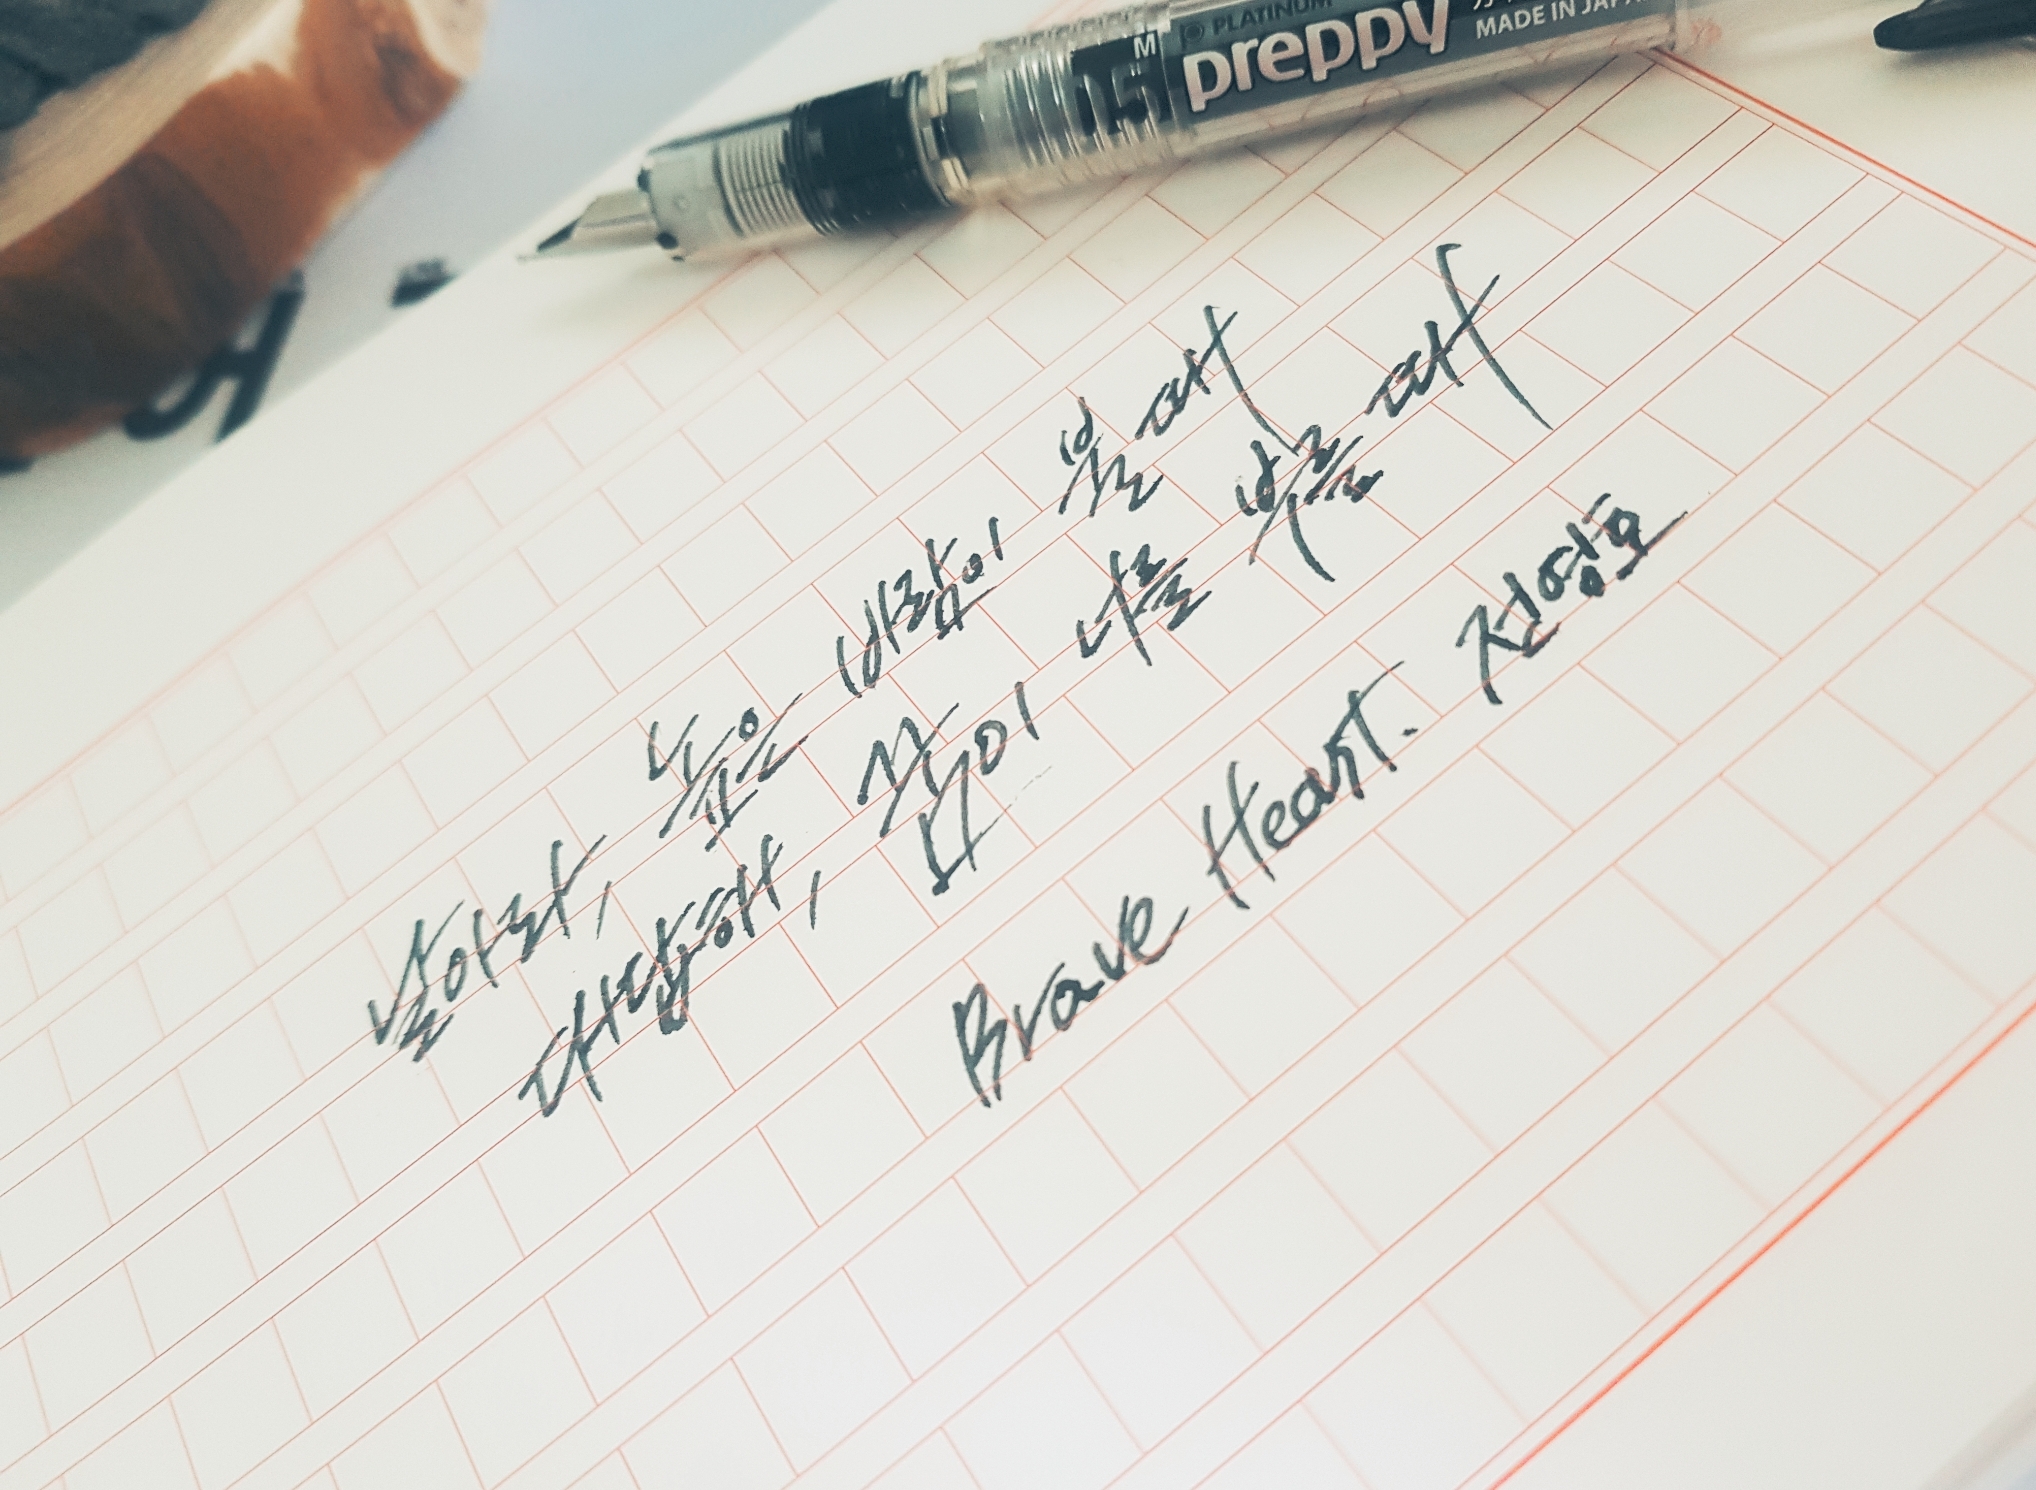 PLATINUM
preppy
MADE IN JAPA
M
05
날아라, 높은 바람이 불 때
대답해, 꿈이 나를 부를 때
Brave Heart. 전영호